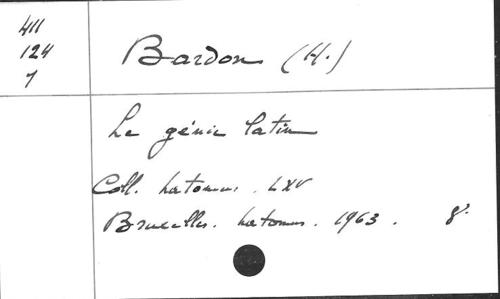 411
124
7
Bardon (H.)
Le génie latin
Coll. Latomus. LXV
Bruxelles. Latomus. 1963. 8°.